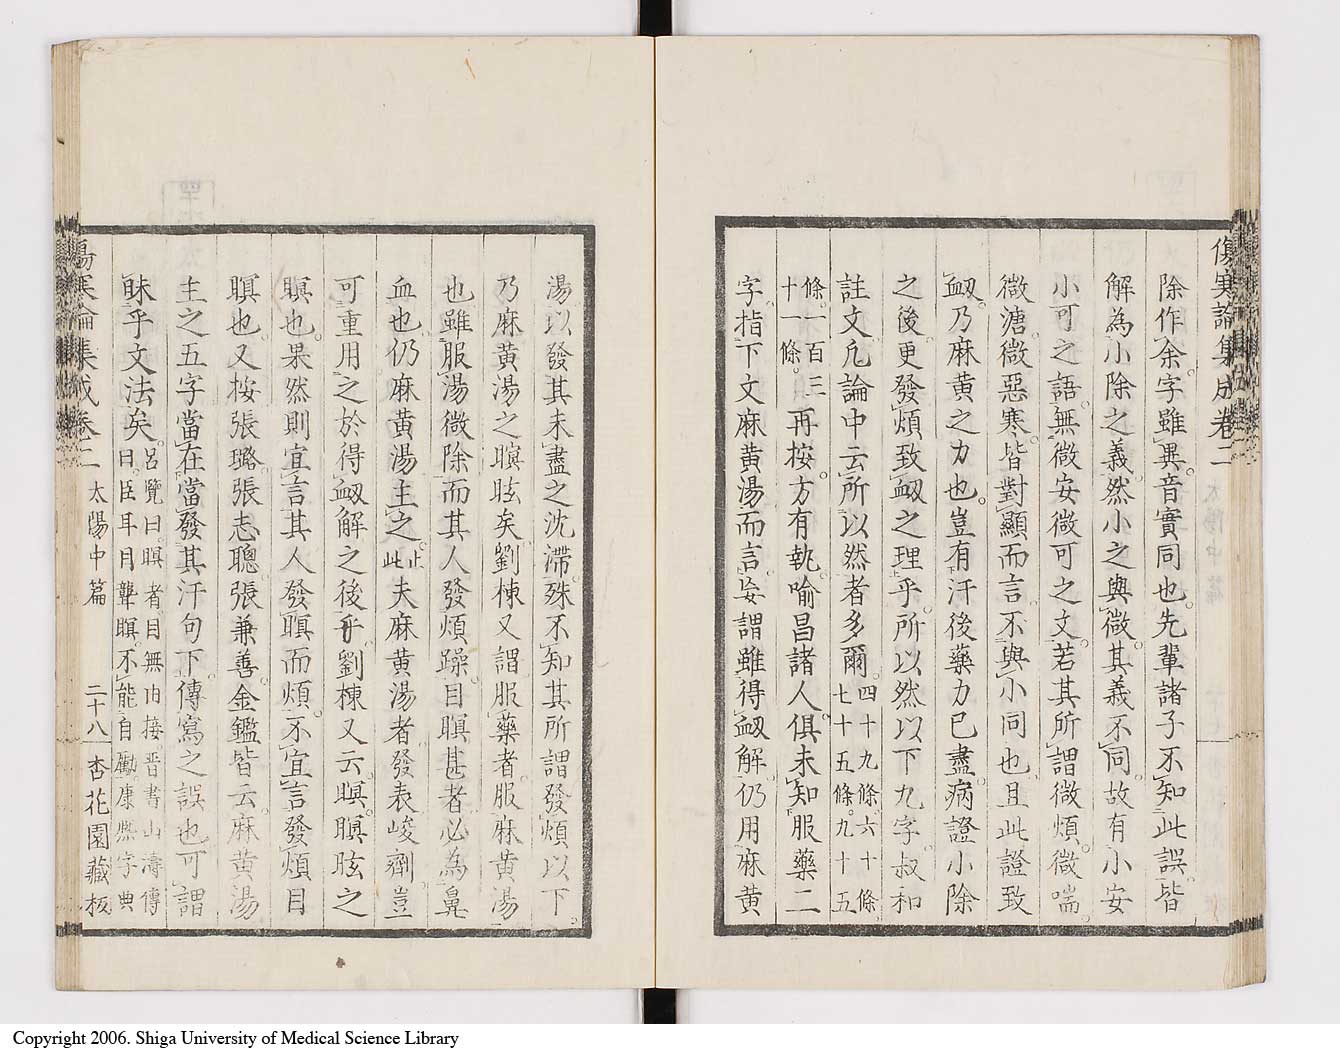 傷寒論集成卷二
除作余字雖異音實同也先輩諸子不知此誤皆
解為小除之義然小之與微其義不同故有小安
小可之語無微安微可之文若其所謂微煩微喘
微溏微惡寒皆對顯而言不與小同也且此證致
衂乃麻黄之力也豈有汗後藥力已盡病證小除
之後更發煩致衂之理乎所以然以下九字叔和
註文凡論中云所以然者多爾四十九條六十條七十五條九十五
條一百三十一條再按方有執喻昌諸人俱未知服藥二
字指下文麻黄湯而言妄謂雖得衂解仍用麻黄
湯以發其未盡之沈滯殊不知其所謂發煩以下
乃麻黄湯之瞑眩矣劉棟又謂服藥者服麻黄湯
也雖服湯微除而其人發煩躁目瞑甚者必為鼻
血也仍麻黄湯主之止此夫麻黄湯者發表峻劑豈
可重用之於得衂解之後乎劉棟又云瞑瞑眩之
瞑也果然則宜言其人發瞑而煩不宜言發煩目
瞑也又按張璐張志聰張兼善金鑑皆云麻黄湯
主之五字當在當發其汗句下傳寫之誤也可謂
昧乎文法矣呂覽曰瞑者目無由接晋書山濤傳曰臣耳目聾瞑不能自勵康熙字典
傷寒論集成卷二 太陽中篇 二十八 杏花園藏板
Copyright 2006. Shiga University of Medical Science Library